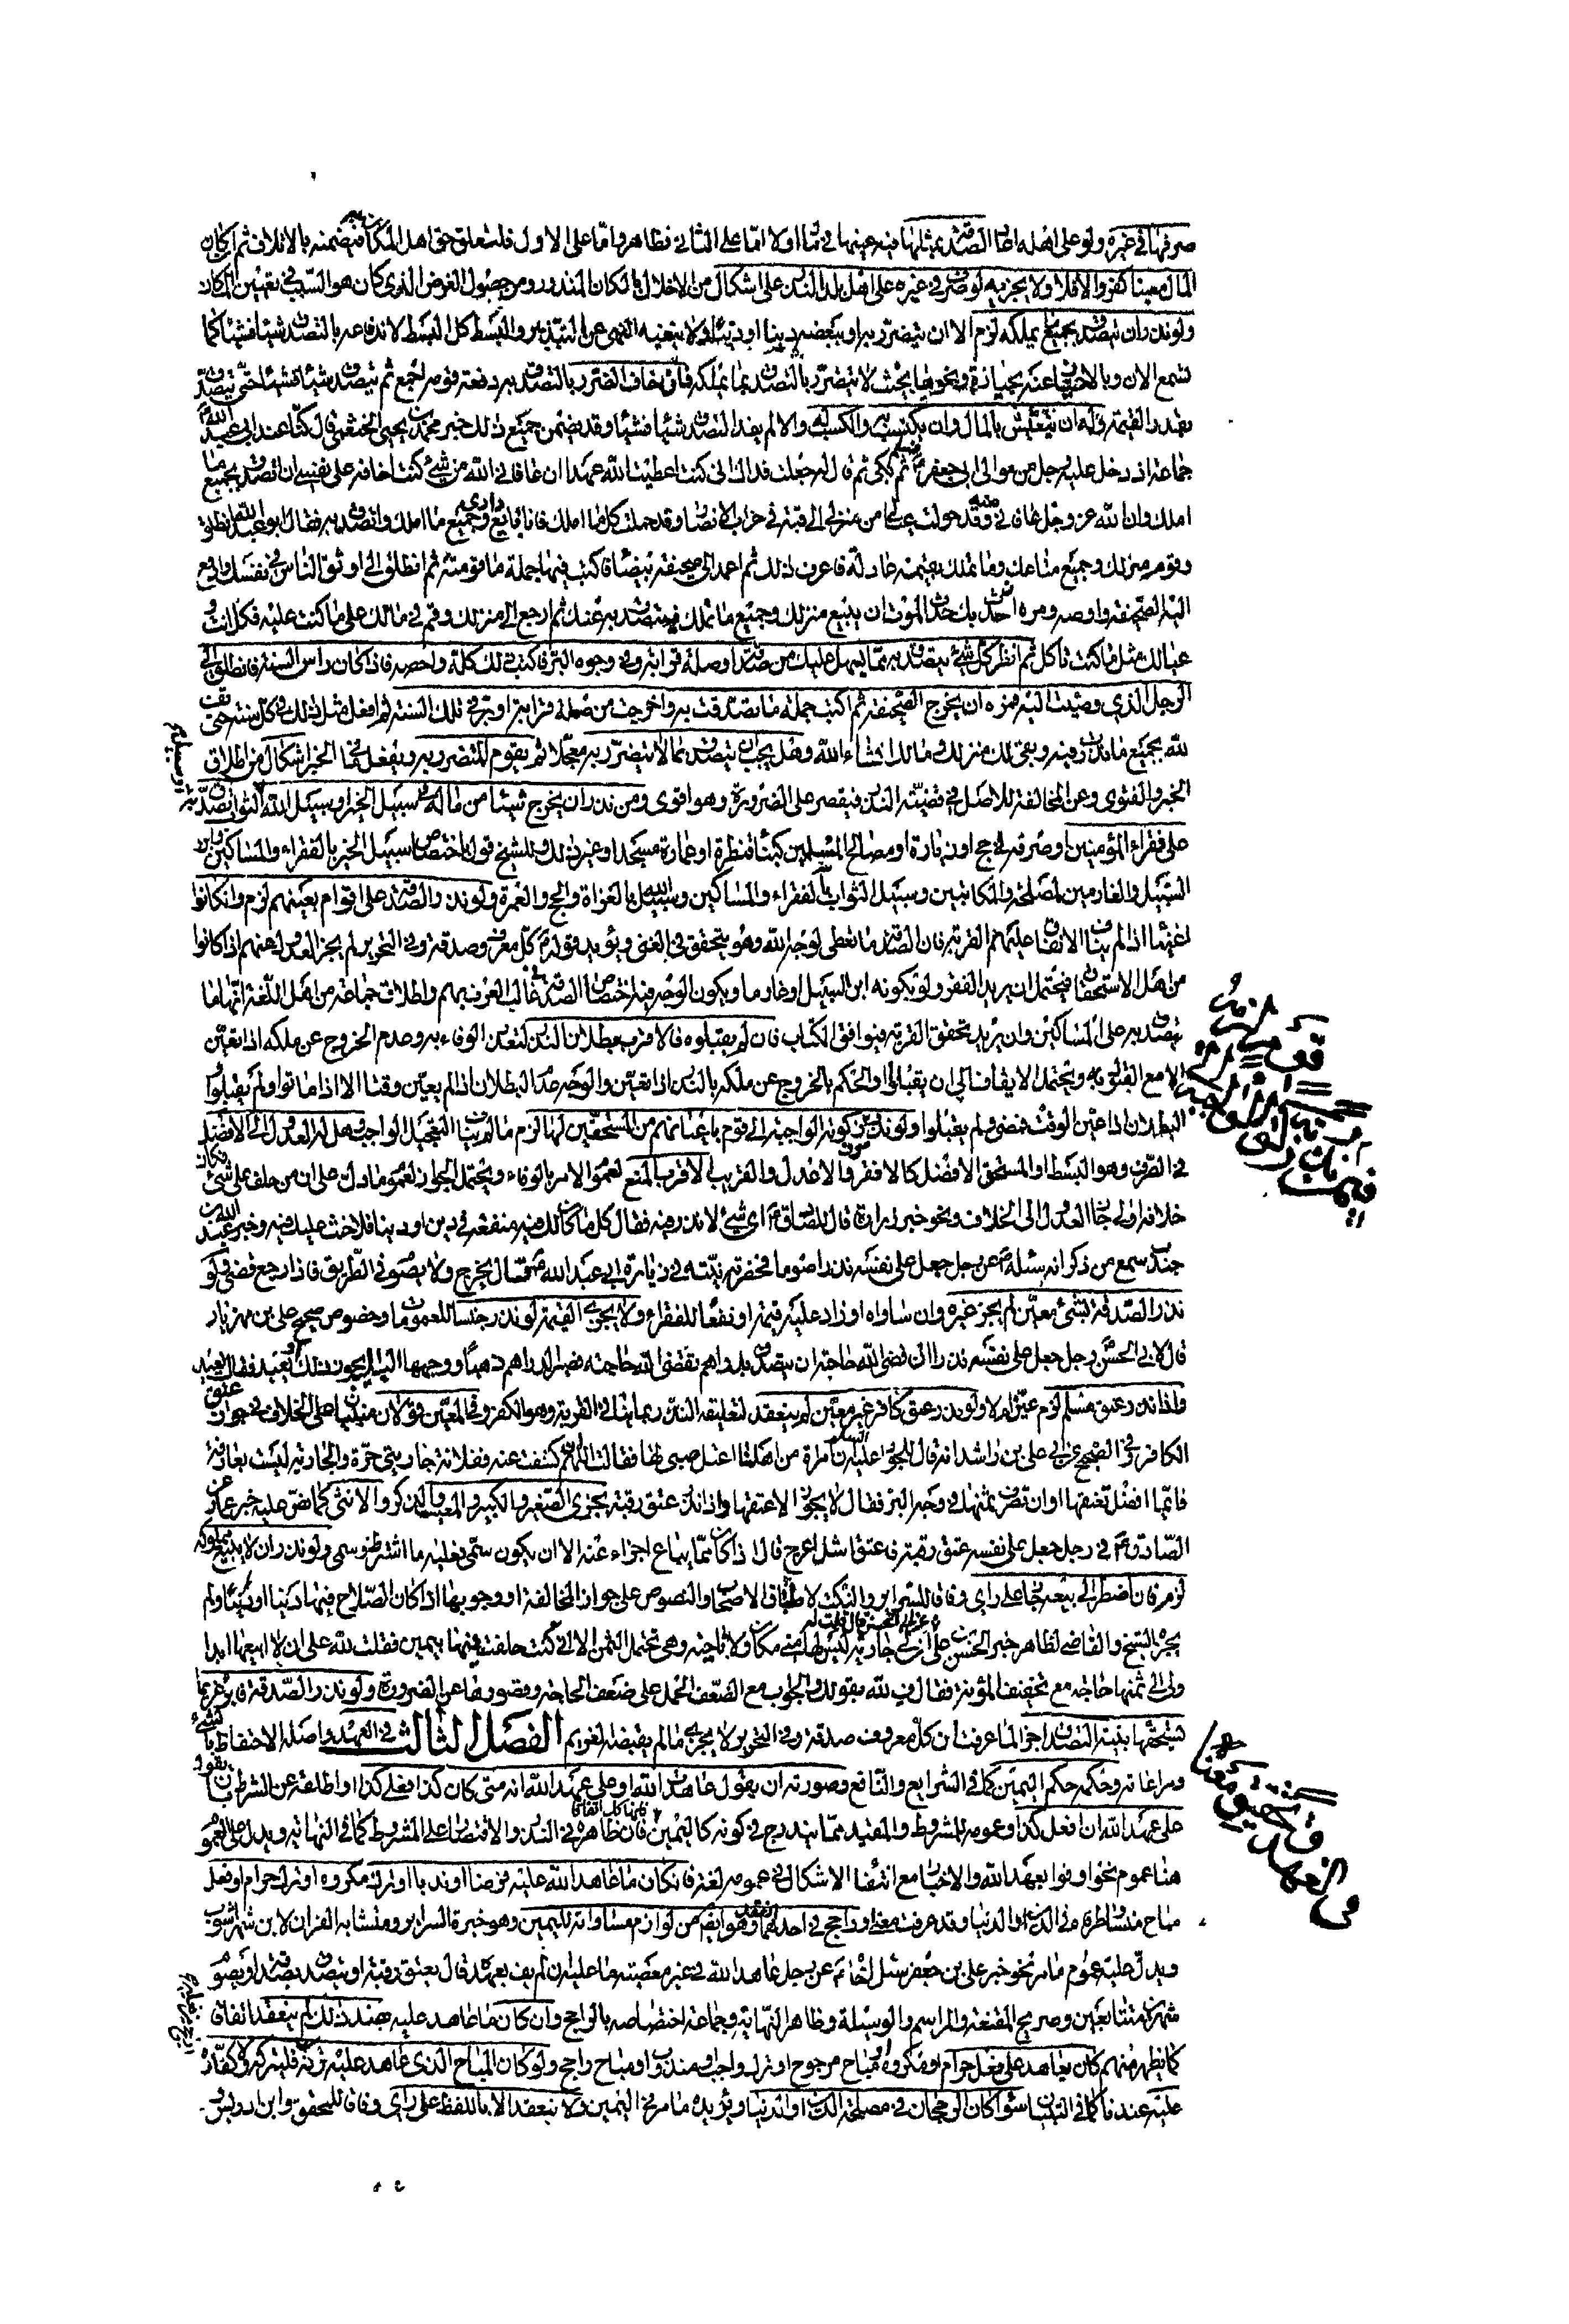 صرفها في غيره ولو على اهله اعاد الصدقة بمثلها فيه عينها في مال اولا اما على الثاني فظاهر واما على الاول فلتعلق حق اهل المكان به فيضمنه بالاتلاف ثم ان كان
المال معينا كفر والا فلا ولا يجزيه لو صرف في غيره على اهل بلد النذر على اشكال من الاخلال بالمكان المنذور ومن حصول الغرض الذي كان هو السبب في تعيين المكان
ولو نذر ان يتصدق بجميع ما يملكه لزم الا ان يتضرر به او ببعضه دينا او دنيا ولا ينفيه النهي عن التبذير والبسط كل البسط لاندفاعه بالتصدق شيئا فشيئا كما
تسمع الان وبالاحتياج عنه بحيازة ونحوها بحيث لا يتضرر بالتصدق بما يملكه فان خاف الضرر بالتصدق به دفعة قومه اجمع ثم يتصدق شيئا فشيئا حتى يتصدق
بقدر القيمة وله ان يتعيش بالمال وان يكتسب به والكسب له والا لم يفد التصدق شيئا فشيئا وقد يضمن جميع ذلك خبر محمد بن يحيى الخثعمي قال كنا عند ابي عبد الله
جماعة اذ دخل عليه رجل من موالي ابي جعفر فسلم ثم بكى ثم قال له جعلت فداك اني كنت اعطيت الله عهدا ان عافاني الله من شيء كنت اخافه على نفسي ان اتصدق بجميع ما
املك وان الله عز وجل عافاني منه وقد حولت عيالي من منزلي الى قبة في خراب الانصار وقد حملت كل ما املك فانا بايع داري وجميع ما املك واتصدق به فقال ابو عبد الله انطلق
وقوم منزلك وجميع متاعك وما تملك بقيمة عادلة فاعرف ذلك ثم اعمد الى صحيفة بيضاء فاكتب فيها جملة ما قومته ثم انطلق الى اوثق الناس في نفسك وادفع
اليه الصحيفة واوصه ومره ان حدث بك حدث الموت ان يبيع منزلك وجميع ما تملك فيتصدق به عنك ثم ارجع الى منزلك وقم في مالك على ما كنت عليه فكل انت و
عيالك مثل ما كنت تاكل ثم انظر كل شيء تتصدق به مما يسهل عليك من صدقة او صلة قرابة وفي وجوه البر فاكتب ذلك كله واحصه فاذا كان راس السنة فانطلق الى
الرجل الذي وصيت اليه فمره ان يخرج الصحيفة ثم اكتب جملة ما تصدقت به واخرجت من صلة قرابة او بر في تلك السنة ثم افعل مثل ذلك في كل سنة حتى تفي
لله بجميع ما نذرت فيه ويبقى لك منزلك ومالك انشاء الله وهل يجب ان يتصدق بما لا يتضرر به معجلا ثم يقوم المتضرر به ويفعل به ما في الخبر اشكال من اطلاق
الخبر والفتوى وعن المخالفة للاصل في قضية النذر فيقصر على الضرورة وهو اقوى ومن نذر ان يخرج شيئا من ماله في سبيل الخير او سبيل الله او الثواب تصدق به
على فقراء المؤمنين او صرفه في حج او زيارة او مصالح المسلمين كبناء قنطرة او عمارة مسجد او غير ذلك وللشيخ قول باختصاص سبيل الخير بالفقراء والمساكين وابن
السبيل والغارمين لمصلحة والمكاتبين وسبيل الثواب بالفقراء والمساكين وسبيل الله بالغزاة والحج والعمرة ولو نذر الصدقة على اقوام بعينهم لزم وان كانوا
اغنياء اذا لم يناف الانفاق عليهم القربة فان الصدقة ما تعطى لوجه الله وهو يتحقق في الغني ويؤيده قوله كل معروف صدقة وفي التحرير لم يجز العدول عنهم اذا كانوا
من اهل الاستحقاق فيحتمل ان يريد الفقر ولو بكونه ابن السبيل او غارما ويكون الوجه فيه اختصاص الصدقة في غالب العرف بهم واطلاق جماعة من اهل اللغة انها ما
تصدق به على المساكين وان يريد تحقق القربة فيوافق الكتاب فان لم يقبلوه فالاقرب بطلان النذر لتعذر الوفاء به وعدم الخروج عن ملكه اذا تعين
الا مع القبول ويحتمل الايقاف الى ان يقبلوا والحكم بالخروج عن ملكه بالنذر اذا تعين والوجه عدم البطلان اذا لم يعين وقتا الا اذا ماتوا ولم يقبلوا
البطلان اذا عين الوقت فمضى ولم يقبلوا ولو نذر صرف زكوته الواجبة الى قوم باعيانهم من المستحقين لها لزم ما لم يناف التعجيل الواجب وهل له العدول الى الافضل
في الصرف وهو البسط او المستحق الافضل كالافقر والاعدل والقريب الاقرب المنع لعموم الامر بالوفاء ويحتمل الجواز لعموم ما دل على ان من حلف على شيء وكان
خلافه اولى جاز العدول الى الخلاف ونحو خبر زرارة قال للصادق اي شيء لا نذر فيه فقال كل ما كان لك فيه منفعة في دين او دنيا فلا حنث عليك فيه وخبر عبد الله بن
جندب سمع من ذكر انه سئله عن رجل جعل على نفسه نذرا صوما فحضرته نيته في زيارة ابي عبد الله قال يخرج ولا يصوم في الطريق فاذا رجع قضى ولو
نذر الصدقة بشيء معين لم يجز غيره وان ساواه او زاد عليه قيمة او نفعا للفقراء ولا يجزي القيمة لو نذر جنسا للعموم وخصوص صحيح علي بن مهزيار
قال لابي الحسن رجل جعل على نفسه نذرا ان قضى الله حاجته ان يتصدق بدراهم فقضى الله حاجته فصير الدراهم ذهبا ووجهها اليك ايجوز ذلك او يعيد فقال يعيد
واذا نذر عتق مسلم لزم عين ام لا ولو نذر عتق كافر غير معين لم ينعقد لتعليقه النذر بما ينافي القربة وهو الكفر وفي المعين قولان مبنيان على الخلاف في جواز عتق
الكافر وفي الصحيح عن ابي علي بن راشد انه قال للجواد عليه السلام ان امراة من اهلنا اعتل صبي لها فقالت اللهم ان كشفت عنه ففلانة جاريتي حرة والجارية ليست بعارفة
فايما افضل تعتقها او ان تصرف ثمنها في وجه البر فقال لا يجوز الا عتقها واذا نذر عتق رقبة يجزي الصغير والكبير والمعيب والذكر والانثى كما نص عليه خبر عمار عن
الصادق في رجل جعل على نفسه عتق رقبة فاعتق اشل اعرج قال اذا كان مما يباع اجزاء عنه الا ان يكون سمى فعليه ما اشترط وسمى ولو نذر ان لا يبيع مملوكه
لزم فان اضطر الى بيعه جاز على راي وفاقا للسرائر والنكت لاطباق الاصحاب والنصوص على جواز المخالفة او وجوبها اذا كان الصلاح فيها دينا او دنيا ولم
يجزه الشيخ والقاضي لظاهر خبر الحسن بن علي عن ابي الحسن قال قلت له ان لي جارية ليس لها مني مكان ولا ناحية وهي تحتمل الثمن الا اني كنت حلفت فيها بيمين فقلت لله علي ان لا ابيعها ابدا
ولي الى ثمنها حاجة مع تخفيف المؤنة فقال ف لله بقولك والجواب مع الضعف الحمل على ضعف الحاجة وقصورها عن الضرورة ولو نذر الصدقة فابرء غريما
مستحقها بنية التصدق اجزا لما عرفت ان كل معروف صدقة وفي التحرير لا يجزي ما لم يقبضه الغريم الفصل الثالث في العهد واصله الاحتفاظ بالشيء
ومراعاته وحكمه حكم اليمين كما في الشرايع والنافع وصورته ان يقول عاهدت الله او علي عهد الله انه متى كان كذا فعلي كذا او اطلقه عن الشرط بان يقول
علي عهد الله ان افعل كذا وعمومه للمشروط والمفيد مما يندرج في كونه كاليمين فان ظاهره في النذر والاقتصار على المشروط كما في النهاية ويدل على العموم
هنا عموم نحو اوفوا بعهد الله والاخبار مع انتفاء الاشكال في عمومه لغة فان كان ما عاهد الله عليه فرضا او ندبا او ترك مكروه او ترك حرام او فعل
مباح متساو طرفاه في الدين او الدنيا وقد عرفت معناه او راجح في احدهما انعقد وهو ايضا من لوازم مساواته لليمين وهو خيرة السرائر ومتشابه القران لابن شهراشوب
ويدل عليه عموم ما مر نحو خبر علي بن جعفر سئل اخاه عن رجل عاهد الله في غير معصية ما عليه ان لم يف بعهده قال يعتق رقبة او يتصدق بصدقة او يصوم
شهرين متتابعين وصريح المقنعة والمراسم والوسيلة وظاهر النهاية وجماعة اختصاصه بالراجح وان كان ما عاهد عليه ضد ذلك لم ينعقد اتفاقا
كما يظهر منهم كان يعاهد على فعل حرام او مكروه او مباح مرجوح او ترك واجب او مندوب او مباح راجح ولو كان المباح الذي عاهد عليه تركه اولى فليتركه ولا كفارة
عليه عندنا كما في التبيان سواء كان الرجحان في مصلحة الدين او الدنيا ويؤيده ما مر في اليمين ولا ينعقد الا باللفظ على راي وفاقا للمحقق وابن ادريس
في العهد